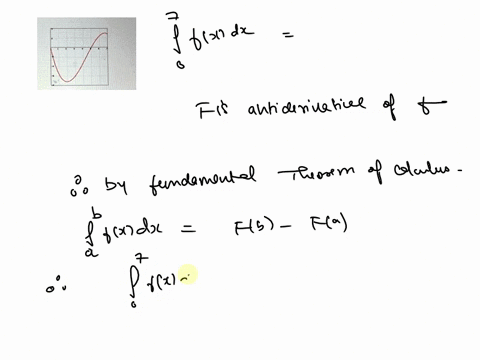 ∫₀⁷ f(x) dx =
F is antiderivative of f
∴ by fundamental Theorem of calculus.
∫ₐᵇ f(x) dx = F(b) - F(a)
∴ ∫₀⁷ f(x) -